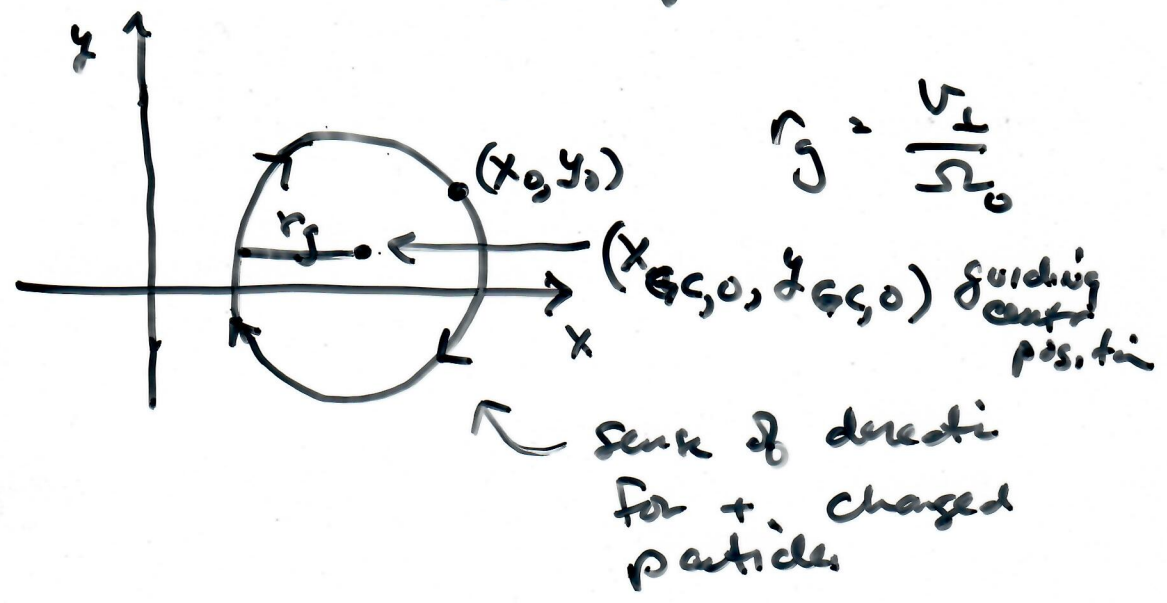 y
(x₀, y₀)
r_g = v_⊥ / Ω₀
r_g
(x_GC,0, y_GC,0) guiding
center
position
x
sense of directi
for + charged
particles